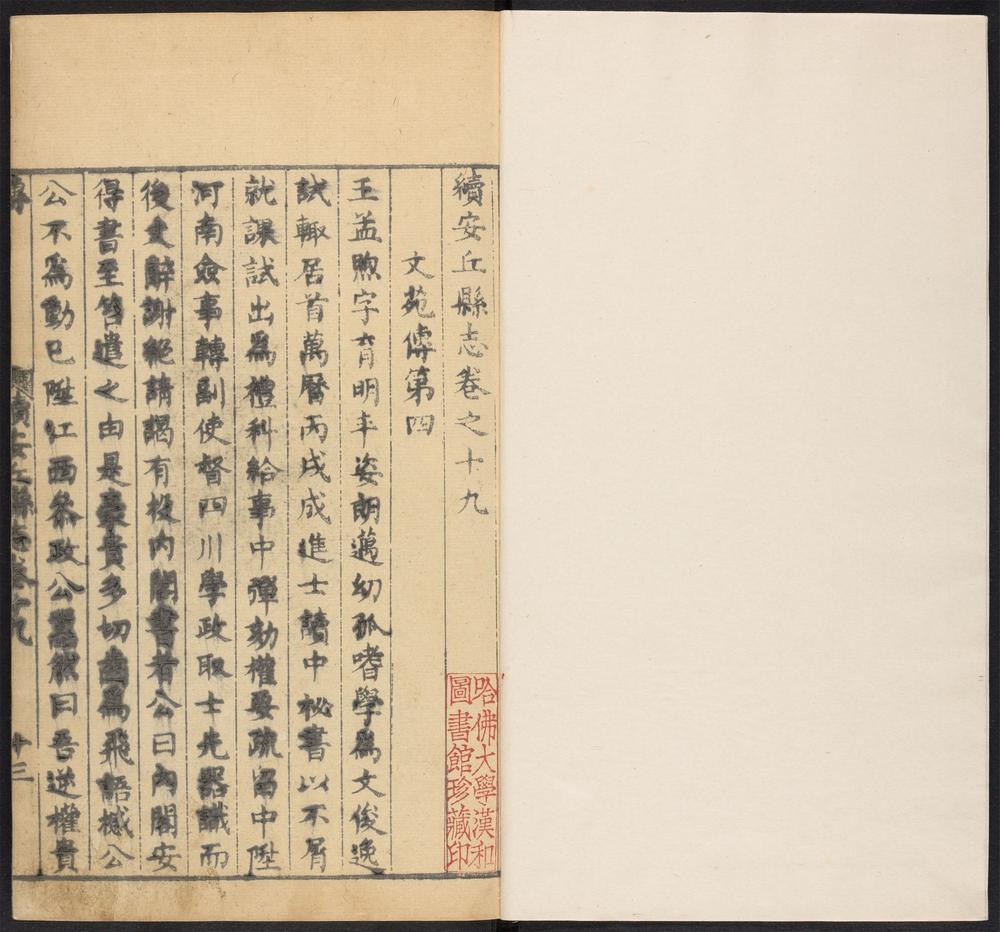 續安丘縣志卷之十九
文苑傳第四
王孟煦字育明丰姿朗邁幼孤嗜學爲文俊逸
試輒居首萬曆丙戌成進士讀中祕書以不屑
就課試出爲禮科給事中彈劾權要疏留中陞
河南僉事轉副使督四川學政取士先器識而
後文辭謝絕請謁有投內閣書者公曰內閣安
得書至笞遣之由是豪貴多切齒爲飛語撼公
公不爲動已陞江西叅政公嚣然曰吾逆權貴
續安丘縣志卷十九
十三
哈佛大學漢和
圖書館珍藏印